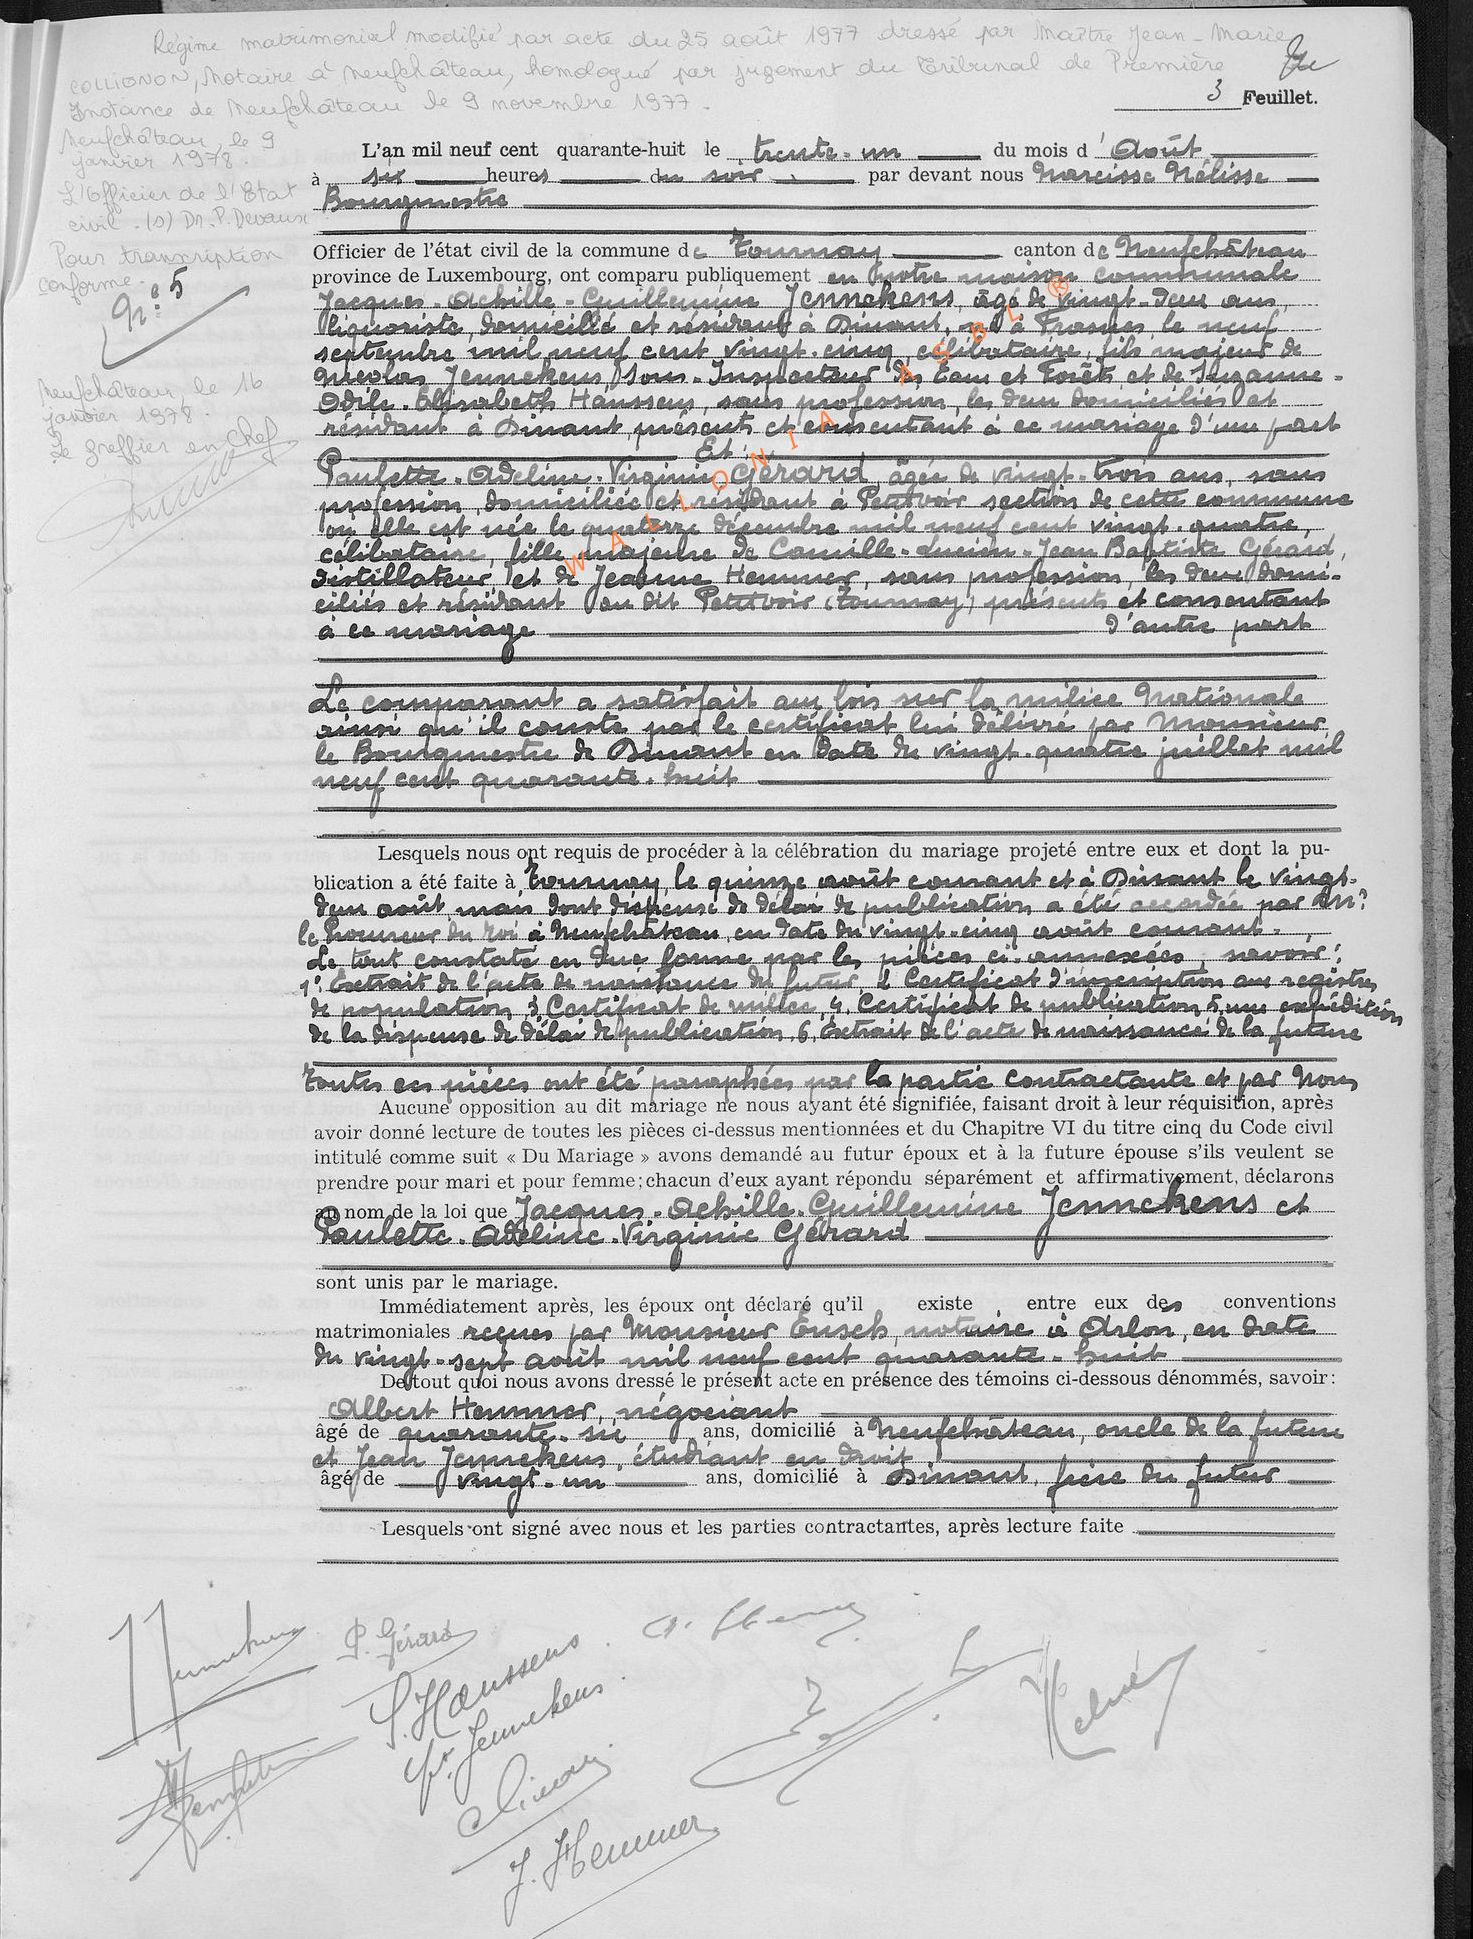 Régime matrimonial modifié par acte du 25 août 1977 dressé par Maître Jean-Marie
COLLIGNON, Notaire à Neufchâteau, homologué par jugement du Tribunal de Première
Instance de Neufchâteau le 9 novembre 1977.
3 Feuillet.
Neufchâteau, le 9
janvier 1978.
L'Officier de l'Etat
civil. (s) Dr. P. Devaux
Pour transcription
conforme.
N° 5
Neufchâteau, le 16
janvier 1978.
Le greffier en chef
L'an mil neuf cent quarante-huit le trente-un du mois d'Août
à six heures du soir par devant nous Narcisse Nélisse
Bourgmestre
Officier de l'état civil de la commune de Tournay canton de Neufchâteau
province de Luxembourg, ont comparu publiquement en notre maison communale
Jacques-Achille-Guillemine Jennekens, âgé de vingt-deux ans,
liquoriste, domicilié et résidant à Dinant, né à Frasnes le neuf
septembre mil neuf cent vingt-cinq, célibataire, fils majeur de
Nicolas Jennekens, Sous-Inspecteur des Eaux et Forêts et de Suzanne-
Odile-Elisabeth Haussens, sans profession, les deux domiciliés et
résidant à Dinant, présents et consentant à ce mariage d'une part
Et :
Paulette-Adeline-Virginie Gérard, âgée de vingt-trois ans, sans
profession, domiciliée et résidant à Petitvoir section de cette commune
où elle est née le quatorze décembre mil neuf cent vingt-quatre,
célibataire, fille majeure de Camille-Lucien-Jean Baptiste Gérard,
distillateur, et de Jeanne Hemmer, sans profession, les deux domi-
ciliés et résidant au dit Petitvoir (Tournay) présents et consentant
à ce mariage d'autre part
WALLONIA ASBL ®
Le comparant a satisfait aux lois sur la milice Nationale
ainsi qu'il conste par le certificat lui délivré par Monsieur
le Bourgmestre de Dinant en date du vingt-quatre juillet mil
neuf cent quarante-huit
Lesquels nous ont requis de procéder à la célébration du mariage projeté entre eux et dont la pu-
blication a été faite à Tournay, le quinze août courant et à Dinant le vingt-
deux août mais dont dispense de délai de publication a été accordée par Mr
le Procureur du Roi à Neufchâteau, en date du vingt-cinq août courant.
Le tout constaté en due forme par les pièces ci-annexées, savoir:
1° Extrait de l'acte de naissance du futur, 2 Certificat d'inscription aux registres
de population, 3. Certificat de milice, 4. Certificat de publication, 5. une expédition
de la dispense de délai de publication, 6. Extrait de l'acte de naissance de la future
Toutes ces pièces ont été paraphées par la partie contractante et par Nous
Aucune opposition au dit mariage ne nous ayant été signifiée, faisant droit à leur réquisition, après
avoir donné lecture de toutes les pièces ci-dessus mentionnées et du Chapitre VI du titre cinq du Code civil
intitulé comme suit « Du Mariage » avons demandé au futur époux et à la future épouse s'ils veulent se
prendre pour mari et pour femme; chacun d'eux ayant répondu séparément et affirmativement, déclarons
au nom de la loi que Jacques-Achille-Guillemine Jennekens et
Paulette-Adeline-Virginie Gérard
sont unis par le mariage.
Immédiatement après, les époux ont déclaré qu'il existe entre eux des conventions
matrimoniales reçues par Monsieur Ensch, notaire à Arlon, en date
du vingt-sept août mil neuf cent quarante-huit
De tout quoi nous avons dressé le présent acte en présence des témoins ci-dessous dénommés, savoir:
Albert Hemmer, négociant
âgé de quarante-six ans, domicilié à Neufchâteau, oncle de la future
et Jean Jennekens, étudiant en droit
âgé de vingt-un ans, domicilié à Dinant, frère du futur
Lesquels ont signé avec nous et les parties contractantes, après lecture faite
Jennekens
P. Gérard
S. Haussens
Jennekens
J. Hemmer